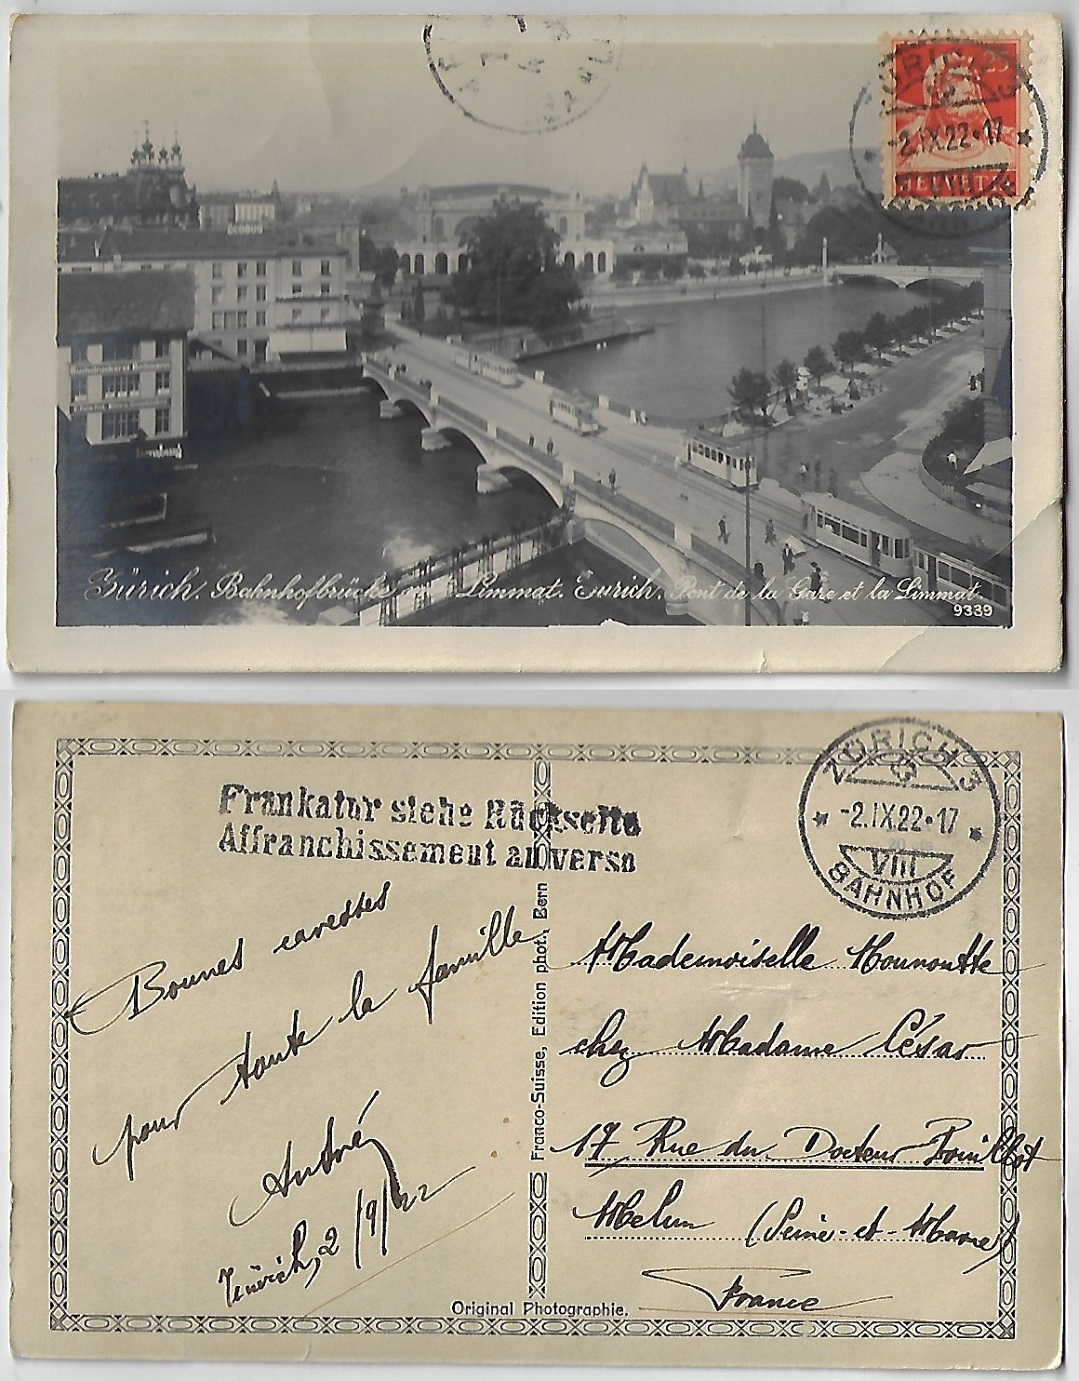 ZÜRICH 3
25
-2.IX.22-17
HELVETIA
GLOBUS
Buchdruckerei
Zürich. Bahnhofbrücke Limmat. Zurich. Pont de la Gare et la Limmat.
9339
Frankatur siehe Rückseite
Affranchissement au verso
ZÜRICH 3
-2.IX.22-17
VIII
BAHNHOF
Bonnes caresses
pour toute la famille
André
Zürich, 2/9/22
Franco-Suisse, Edition phot., Bern
Mademoiselle
chez Madame César
17 Rue du Docteur Pouillot
Melun (Seine-et-Marne)
France
Original Photographie.